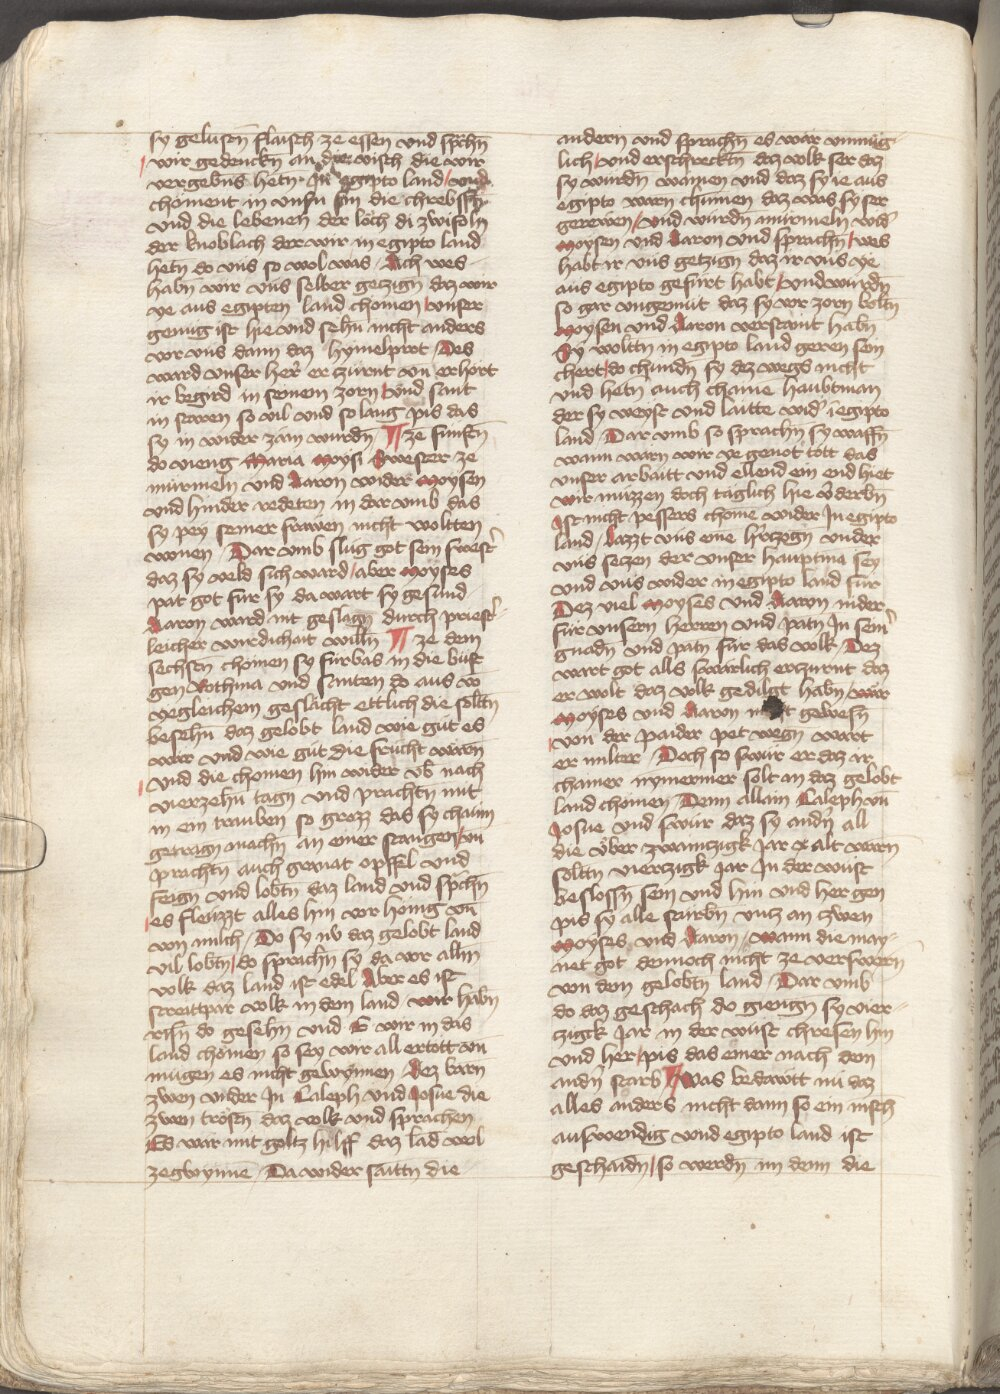 sy gelustn̄ flaisch ze essen vnd sp̄chn̄
wir gedenckn̄ an die visch die wir
vergebn̄s hetn̄ In egipto land / vnd
choment in vnsn̄ sin die chrebssn̄
vnd die lebenen der löch di zwifoln
der knoblach der wir in egipto land
hetn̄ do vns so wol was / Ach wes
habn̄ wir vns selber gezign daz wir
ye aus egipten land chomen / vnser
genüg ist hie vnd sehn̄ nicht anders
vor vns dann daz hymelprot / Des
ward vnser her er zürnt vn̄ erhört
ir begird in seinem zorn / vnd sant
in storen so vil vnd so lang pis das
sy in wider zäm wurdn̄ ¶ ze fünftn̄
do vieng Maria Moysi Swester ze
mürmeln vnd Aaron wider Moysen
vnd hinder redeten in dar vmb das
sy pey seiner frawen nicht woltten
wonen / Dar vmb slüg got sein swest̄
daz sy veld sich ward / aber Moyses
pat got für sy da wart sy gesund
Aaron ward nit geslagn̄ durch priest̄-
leicher wirdichait willn̄ ¶ ze dem
sechstn̄ chomen sy fürbas in die wüst
gen Rothma vnd santen do aus vo
yegleichem geslächt ettlich die soltn̄
besehn̄ daz gelobt land wie güt es
wär vnd wie güt die frücht wärn
vnd die chomen hin wider vb̄ nach
vierzehn̄ tagn̄ vnd prachtn̄ mit
in ein trauben so grozz das sy chaum
getragn̄ machn̄ an einer stangen / vn̄
prachtn̄ auch granat opffel vnd
feign vnd lobtn̄ daz land vnd sp̄chn̄
es fleuzzt alles hin vor hönig vn̄
von milch / Do sy nv daz gelobt land
vil lobtn̄ / do sprachn̄ sy da vor alln̄
volk daz land ist edel Aber es ist
streittpar volk in dem land wir habn̄
risn̄ do gesehn̄ vnd E wir in das
land chömen so sey wir all ertott vn̄
mügen es nicht gewynnen / Dez warn
zwen vnder In Caleph vnd Josue die
zwen tröstn̄ daz volk vnd sprachen
Es war mit gottz hilff daz lād wol
zegwynne / Da wider saittn̄ die
andern vnd sprachn̄ es wär vnmüg-
lich / vnd erschrecktn̄ daz volk ser daz
sy wurdn̄ wainen vnd daz sy ie aus
egipto warn chumen daz was sy ser
gerewen / vnd wurdn̄ mürmeln wid̄
Moysen vnd Aaron vnd sprachn̄ / wes
habt ir vns getzign̄ daz ir vns ye
aus egipto gefürt habt / vnd wurdn̄
so gar vngemüt daz sy vor zorn woltn̄
Moysen vnd Aaron verstaint habn̄
Sy woltn̄ in egipto land geren sein
chert / do chundn̄ sy dez wegs nicht
vnd hetn̄ auch chaine haubtman
der sy weyst vnd laitte wid̄ ī egipto
land / Dar vmb so sprachn̄ sy waffn̄
wann warn wir ye genöt tott das
vnser arbaitt vnd ellend ein end hiet
wir müzzen doch täglich hie v̄derbn̄
Ist nicht pessers chome wider In egipto
land / Lazzt vns eine h̄tzogn̄ vnder
vns sezen der vnser hauptma sey
vnd vns wider in egipto land für
Dez viel Moyses vnd Aaron nider
für vnsern herren vnd patn̄ In sein̄
gnadn̄ vnd patn̄ für das volk / Dez
wart got alls swärlich erzürnt daz
er wolt daz volk gedilgt habn̄ / wär
Moyses vnd Aaron gewesn̄
von der paider pet wegn̄ wart
er milter / Doch so swür er daz ir
chainer nymermer solt an daz gelobt
land chomen / Denn allain Caleph vn̄
Josue vnd swür daz sy andn̄ all
die über zwainczigk Jar alt wärn
soltn̄ vierczigk Jar In der wüst
beslossn̄ sein vnd hin vnd her gen
pis sy alle sturbn̄ vntz an zwen
Moyses vnd Aaron / wann die may-
net got dennoch nicht ze verswern
von dem gelobtn̄ land / Dar vmb
do daz geschach do giengn̄ sy vier-
zigk Jar in der wüst chresen hin
vnd her / pis das einer nach dem
andn̄ starb ¶ Was bedawtt nu daz
alles anders nicht dann so ein mēsch
auswendig vnd egipto land ist
geschaidn̄ / so werdn̄ im denn die